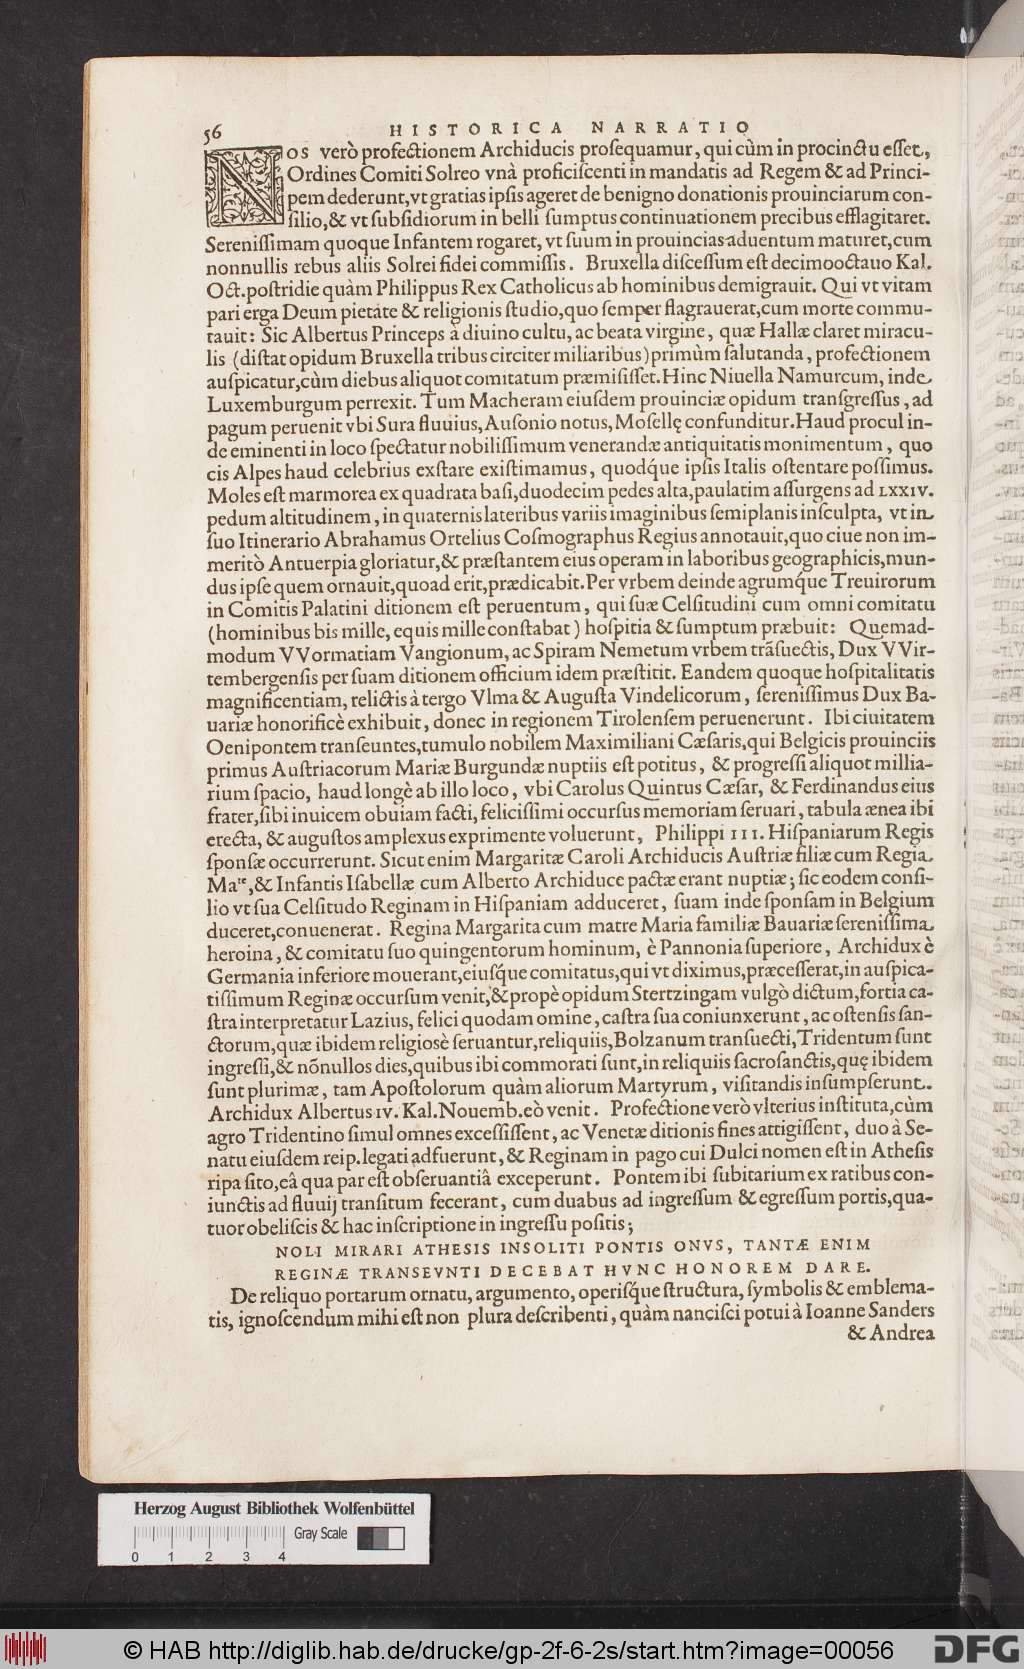 56
HISTORICA NARRATIO
NOS verò profectionem Archiducis proſequamur, qui cùm in procinctu eſſet,
Ordines Comiti Solreo vnà proficiſcenti in mandatis ad Regem & ad Princi-
pem dederunt, vt gratias ipſis ageret de benigno donationis prouinciarum con-
ſilio, & vt ſubſidiorum in belli ſumptus continuationem precibus efflagitaret.
Sereniſſimam quoque Infantem rogaret, vt ſuum in prouincias aduentum maturet, cum
nonnullis rebus aliis Solrei fidei commiſſis. Bruxella diſceſſum eſt decimooctauo Kal.
Oct. poſtridie quàm Philippus Rex Catholicus ab hominibus demigrauit. Qui vt vitam
pari erga Deum pietate & religionis ſtudio, quo ſemper flagrauerat, cum morte commu-
tauit: Sic Albertus Princeps à diuino cultu, ac beata virgine, quæ Hallæ claret miracu-
lis (diſtat opidum Bruxella tribus circiter miliaribus) primùm ſalutanda, profectionem
auſpicatur, cùm diebus aliquot comitatum præmiſiſſet. Hinc Niuella Namurcum, inde
Luxemburgum perrexit. Tum Macheram eiuſdem prouinciæ opidum tranſgreſſus, ad
pagum peruenit vbi Sura fluuius, Auſonio notus, Moſellę confunditur. Haud procul in-
de eminenti in loco ſpectatur nobiliſſimum venerandæ antiquitatis monimentum, quo
cis Alpes haud celebrius exſtare exiſtimamus, quodq́ue ipſis Italis oſtentare poſſimus.
Moles eſt marmorea ex quadrata baſi, duodecim pedes alta, paulatim aſſurgens ad LXXIV.
pedum altitudinem, in quaternis lateribus variis imaginibus ſemiplanis inſculpta, vt in
ſuo Itinerario Abrahamus Ortelius Coſmographus Regius annotauit, quo ciue non im-
meritò Antuerpia gloriatur, & præſtantem eius operam in laboribus geographicis, mun-
dus ipſe quem ornauit, quoad erit, prædicabit. Per vrbem deinde agrumq́ue Treuirorum
in Comitis Palatini ditionem eſt peruentum, qui ſuæ Celſitudini cum omni comitatu
(hominibus bis mille, equis mille conſtabat) hoſpitia & ſumptum præbuit: Quemad-
modum VVormatiam Vangionum, ac Spiram Nemetum vrbem trãſuectis, Dux VVir-
tembergenſis per ſuam ditionem officium idem præſtitit. Eandem quoque hoſpitalitatis
magnificentiam, relictis à tergo Vlma & Auguſta Vindelicorum, ſereniſſimus Dux Ba-
uariæ honorificè exhibuit, donec in regionem Tirolenſem peruenerunt. Ibi ciuitatem
Oenipontem tranſeuntes, tumulo nobilem Maximiliani Cæſaris, qui Belgicis prouinciis
primus Auſtriacorum Mariæ Burgundæ nuptiis eſt potitus, & progreſſi aliquot millia-
rium ſpacio, haud longè ab illo loco, vbi Carolus Quintus Cæſar, & Ferdinandus eius
frater, ſibi inuicem obuiam facti, feliciſſimi occurſus memoriam ſeruari, tabula ænea ibi
erecta, & auguſtos amplexus exprimente voluerunt, Philippi III. Hiſpaniarum Regis
ſponſæ occurrerunt. Sicut enim Margaritæ Caroli Archiducis Auſtriæ filiæ cum Regia
Maᵗᵉ, & Infantis Iſabellæ cum Alberto Archiduce pactæ erant nuptiæ; ſic eodem conſi-
lio vt ſua Celſitudo Reginam in Hiſpaniam adduceret, ſuam inde ſponſam in Belgium
duceret, conuenerat. Regina Margarita cum matre Maria familiæ Bauariæ ſereniſſima
heroina, & comitatu ſuo quingentorum hominum, è Pannonia ſuperiore, Archidux è
Germania inferiore mouerant, eiuſq́ue comitatus, qui vt diximus, præceſſerat, in auſpica-
tiſſimum Reginæ occurſum venit, & propè opidum Stertzingam vulgò dictum, fortia ca-
ſtra interpretatur Lazius, felici quodam omine, caſtra ſua coniunxerunt, ac oſtenſis ſan-
ctorum, quæ ibidem religiosè ſeruantur, reliquiis, Bolzanum tranſuecti, Tridentum ſunt
ingreſſi, & nõnullos dies, quibus ibi commorati ſunt, in reliquiis ſacroſanctis, quę ibidem
ſunt plurimæ, tam Apoſtolorum quàm aliorum Martyrum, viſitandis inſumpſerunt.
Archidux Albertus IV. Kal. Nouemb. eò venit. Profectione verò vlterius inſtituta, cùm
agro Tridentino ſimul omnes exceſſiſſent, ac Venetæ ditionis fines attigiſſent, duo à Se-
natu eiuſdem reip. legati adfuerunt, & Reginam in pago cui Dulci nomen eſt in Atheſis
ripa ſito, eâ qua par eſt obſeruantiâ exceperunt. Pontem ibi ſubitarium ex ratibus con-
iunctis ad fluuij tranſitum fecerant, cum duabus ad ingreſſum & egreſſum portis, qua-
tuor obeliſcis & hac inſcriptione in ingreſſu poſitis;
NOLI MIRARI ATHESIS INSOLITI PONTIS ONVS, TANTÆ ENIM
REGINÆ TRANSEVNTI DECEBAT HVNC HONOREM DARE.
De reliquo portarum ornatu, argumento, operiſq́ue ſtructura, ſymbolis & emblema-
tis, ignoſcendum mihi eſt non plura deſcribenti, quàm nanciſci potui à Ioanne Sanders
& Andrea
Herzog August Bibliothek Wolfenbüttel
Gray Scale
0 1 2 3 4
© HAB http://diglib.hab.de/drucke/gp-2f-6-2s/start.htm?image=00056
DFG